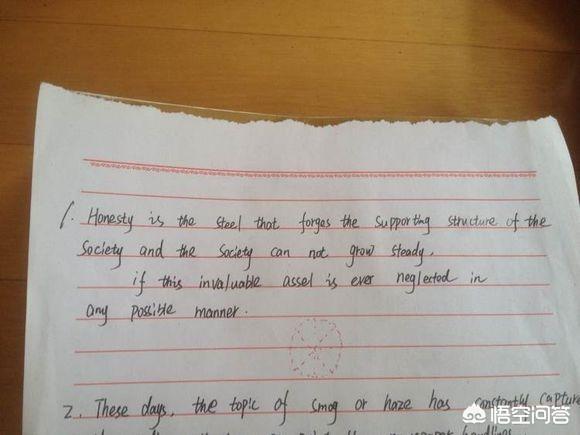 1. Honesty is the steel that forges the supporting structure of the
society and the society can not grow steady,
if this invaluable assel is ever neglected in
any possible manner.
2. These days, the topic of smog or haze has constantly capture
悟空问答